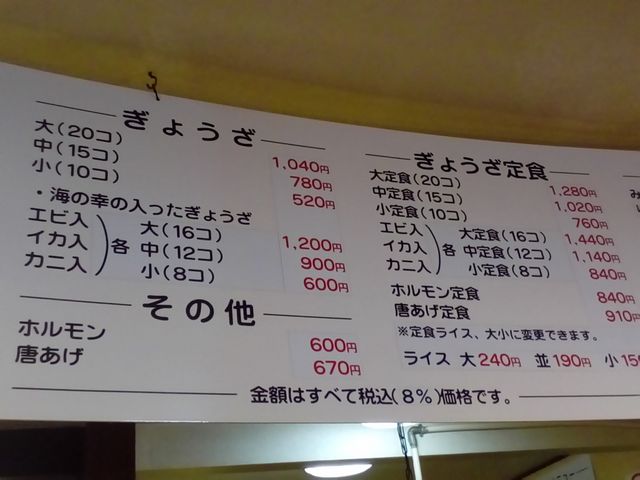 ぎょうざ
大(20コ) 1,040円
中(15コ) 780円
小(10コ) 520円
・海の幸の入ったぎょうざ
エビ入
イカ入
カニ入
各
大(16コ) 1,200円
中(12コ) 900円
小(8コ) 600円
その他
ホルモン 600円
唐あげ 670円
ぎょうざ定食
大定食(20コ) 1,280円
中定食(15コ) 1,020円
小定食(10コ) 760円
エビ入
イカ入
カニ入
各
大定食(16コ) 1,440円
中定食(12コ) 1,140円
小定食(8コ) 840円
ホルモン定食 840円
唐あげ定食 910円
※定食ライス、大小に変更できます。
ライス 大240円 並190円 小15
金額はすべて税込(8%)価格です。